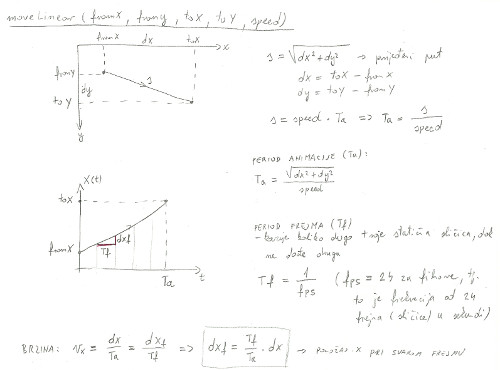 moveLinear (fromX, fromY, toX, toY, speed)
fromX dx toX
x
fromY
dy
s
toY
y
s = √dx² + dy² → prijeđeni put
dx = toX - fromX
dy = toY - fromY
s = speed · Ta => Ta = s / speed
PERIOD ANIMACIJE (Ta):
Ta = √dx² + dy² / speed
X(t)
toX
fromX
dxf
Tf
Ta
t
PERIOD FREJMA (Tf)
- koliko dugo traje statična sličica, dok
ne dođe druga
Tf = 1 / fps (fps = 24 za filmove, tj.
to je frekvencija od 24
frejma (sličice) u sekundi)
BRZINA: vx = dx / Ta = dxf / Tf => dxf = Tf / Ta · dx → X pri svakom frejmu